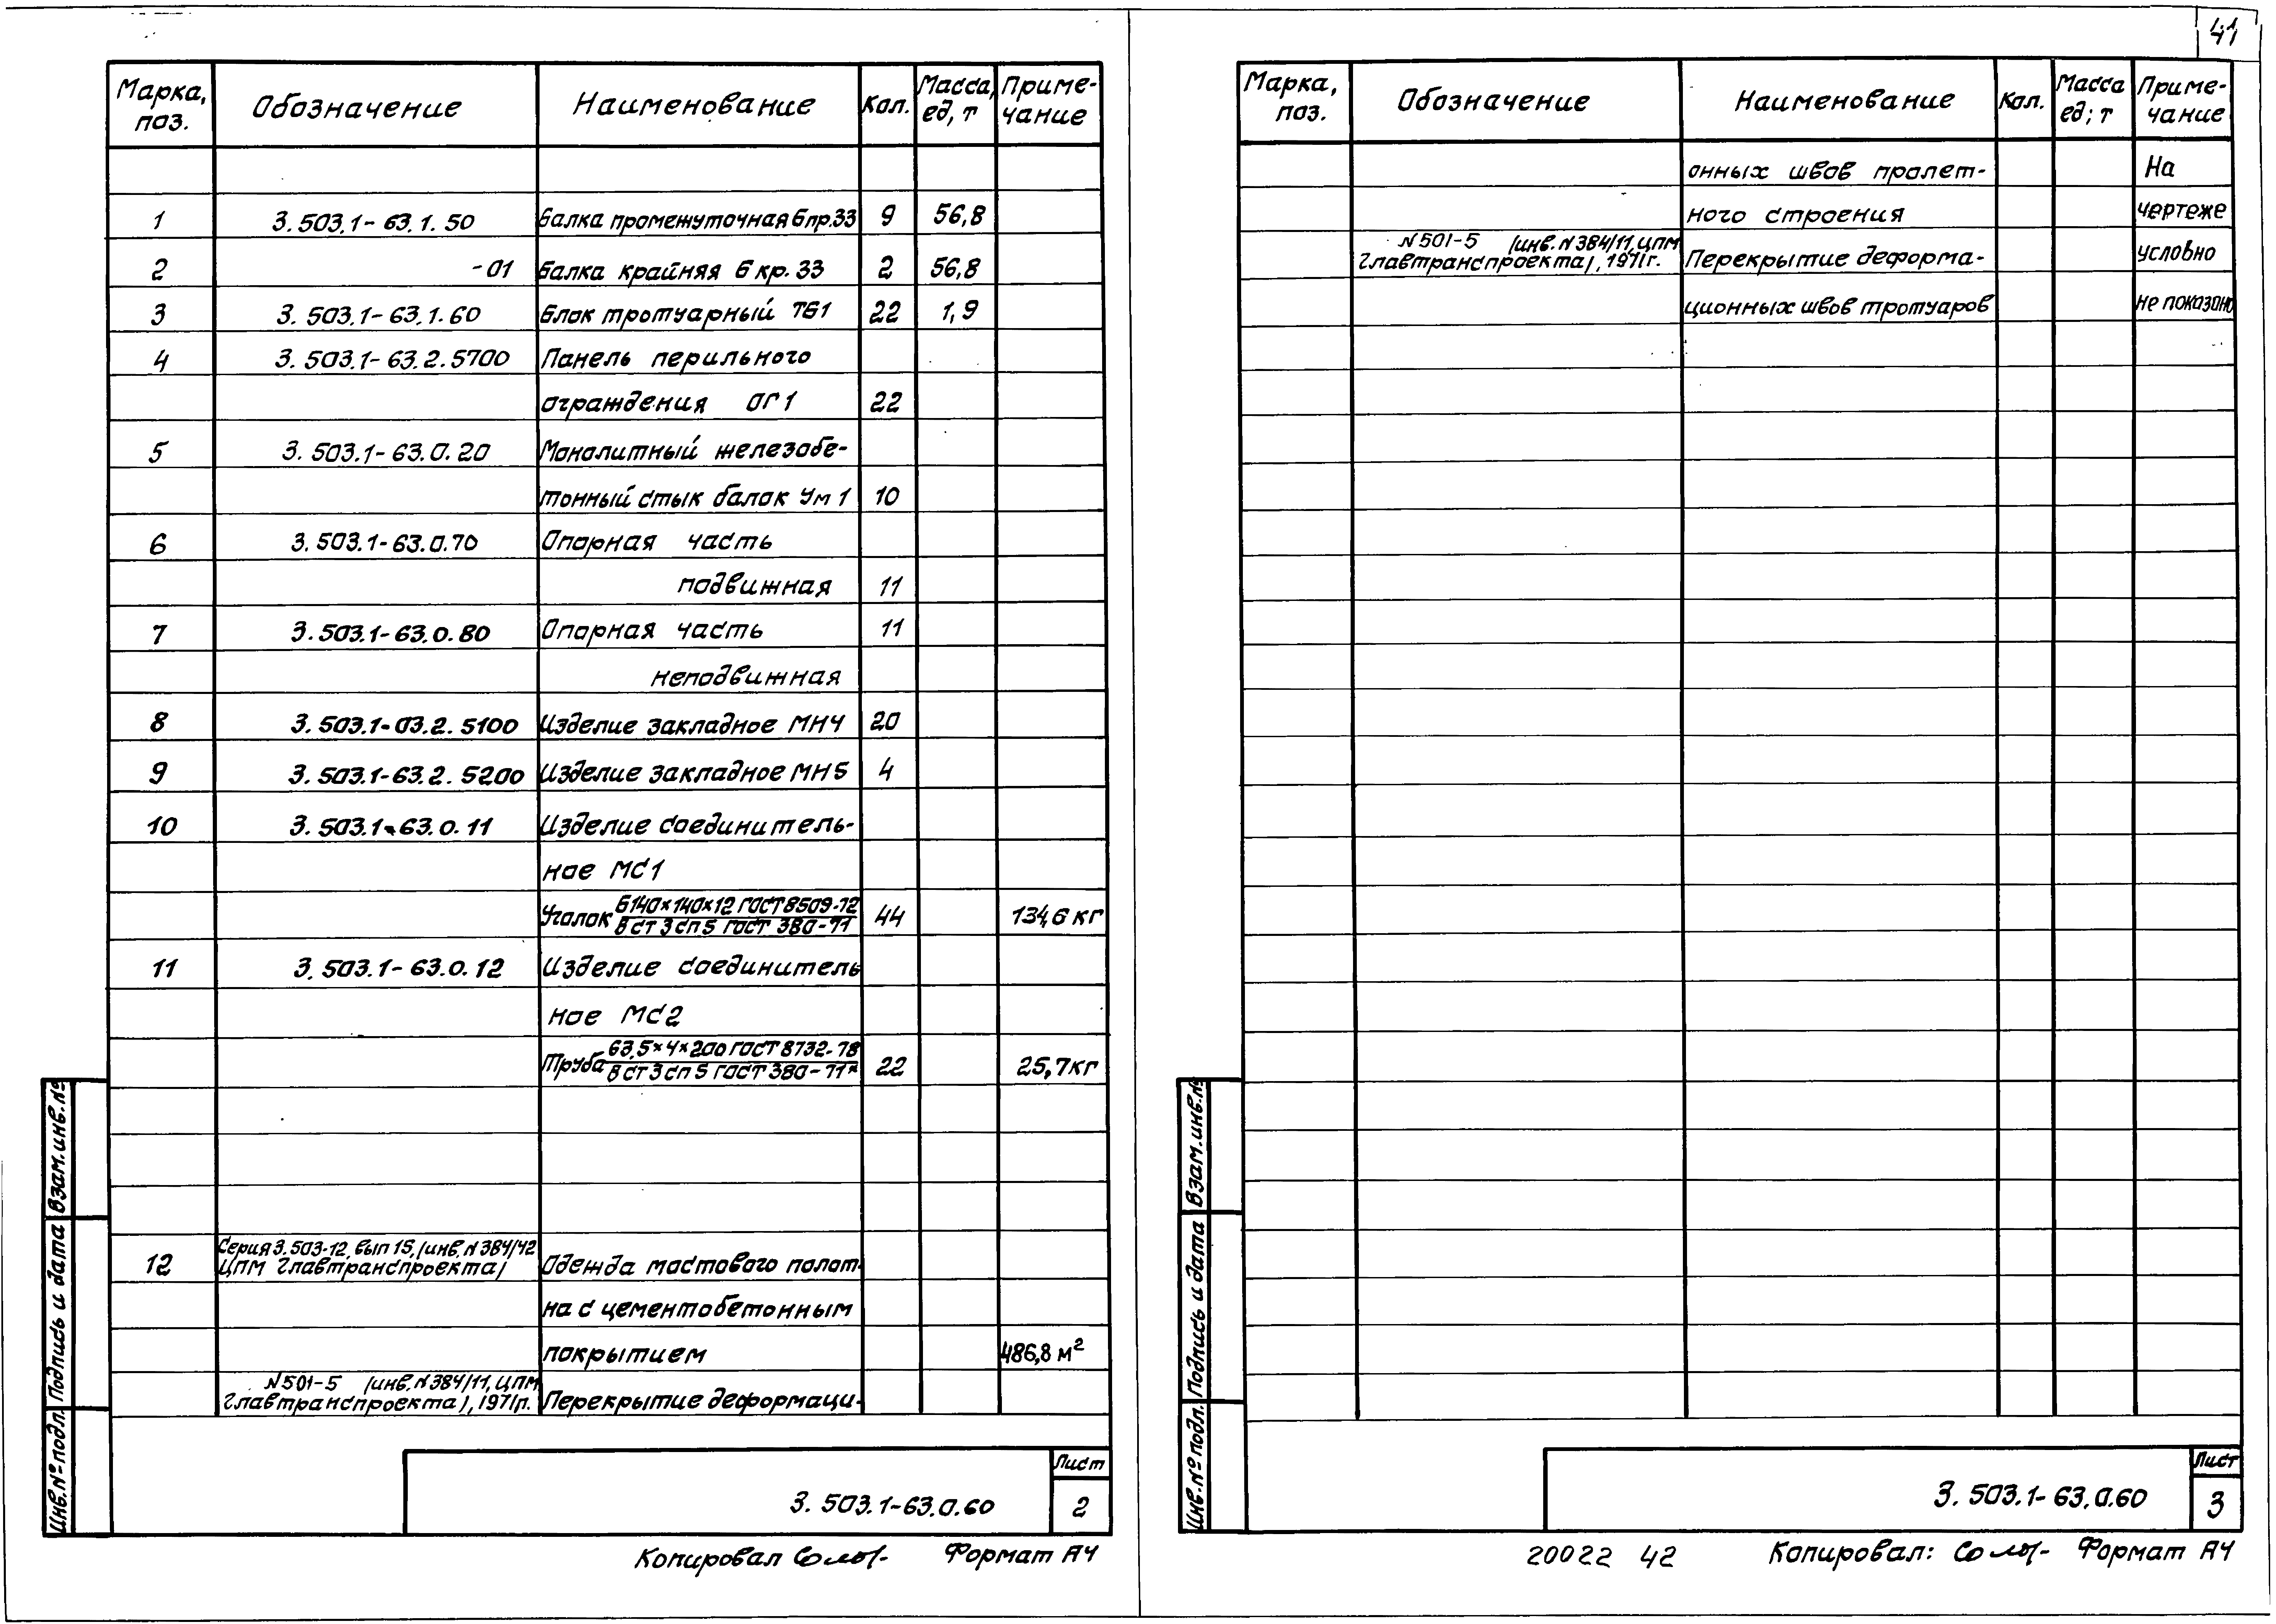 41
Марка, поз. Обозначение Наименование Кол. Масса, ед, т Приме-чание
1 3.503.1-63.1.50 Балка промежуточная Бпр.33 9 56,8
2 -01 Балка крайняя Б кр.33 2 56,8
3 3.503.1-63.1.60 Блок тротуарный ТБ1 22 1,9
4 3.503.1-63.2.5700 Панель перильного
ограждения ОГ1 22
5 3.503.1-63.0.20 Монолитный железобе-
тонный стык балок Ум1 10
6 3.503.1-63.0.70 Опорная часть
подвижная 11
7 3.503.1-63.0.80 Опорная часть 11
неподвижная
8 3.503.1-03.2.5100 Изделие закладное МН4 20
9 3.503.1-63.2.5200 Изделие закладное МН5 4
10 3.503.1-63.0.11 Изделие соединитель-
ное МС1
Б140×140×12 ГОСТ 8509-72
Уголок 44 134,6 кг
В ст 3 сп 5 ГОСТ 380-71
11 3.503.1-63.0.12 Изделие соединитель
ное МС2
63,5×4×200 ГОСТ 8732-78
Труба 22 25,7 кг
В ст 3 сп 5 ГОСТ 380-71*
Серия 3.503-12, вып 15, /инв. N 384/42
12 ЦПМ Главтранспроекта/ Одежда мостового полот-
на с цементобетонным
покрытием 486,8 м²
N 501-5 /инв. N 384/11, ЦПМ
Главтранспроекта/, 1971г. Перекрытие деформаци-
Взам. инв. №
Подпись и дата
Инв. № подл.
3.503.1-63.0.60 Лист 2
Копировал Формат А4
Марка, поз. Обозначение Наименование Кол. Масса ед; т Приме-чание
онных швов пролет- На
ного строения чертеже
N 501-5 /инв. N 384/11, ЦПМ
Главтранспроекта/, 1971г. Перекрытие деформа- условно
ционных швов тротуаров не показано
Взам. инв. №
Подпись и дата
Инв. № подл.
3.503.1-63.0.60 Лист 3
20022 42 Копировал: Формат А4